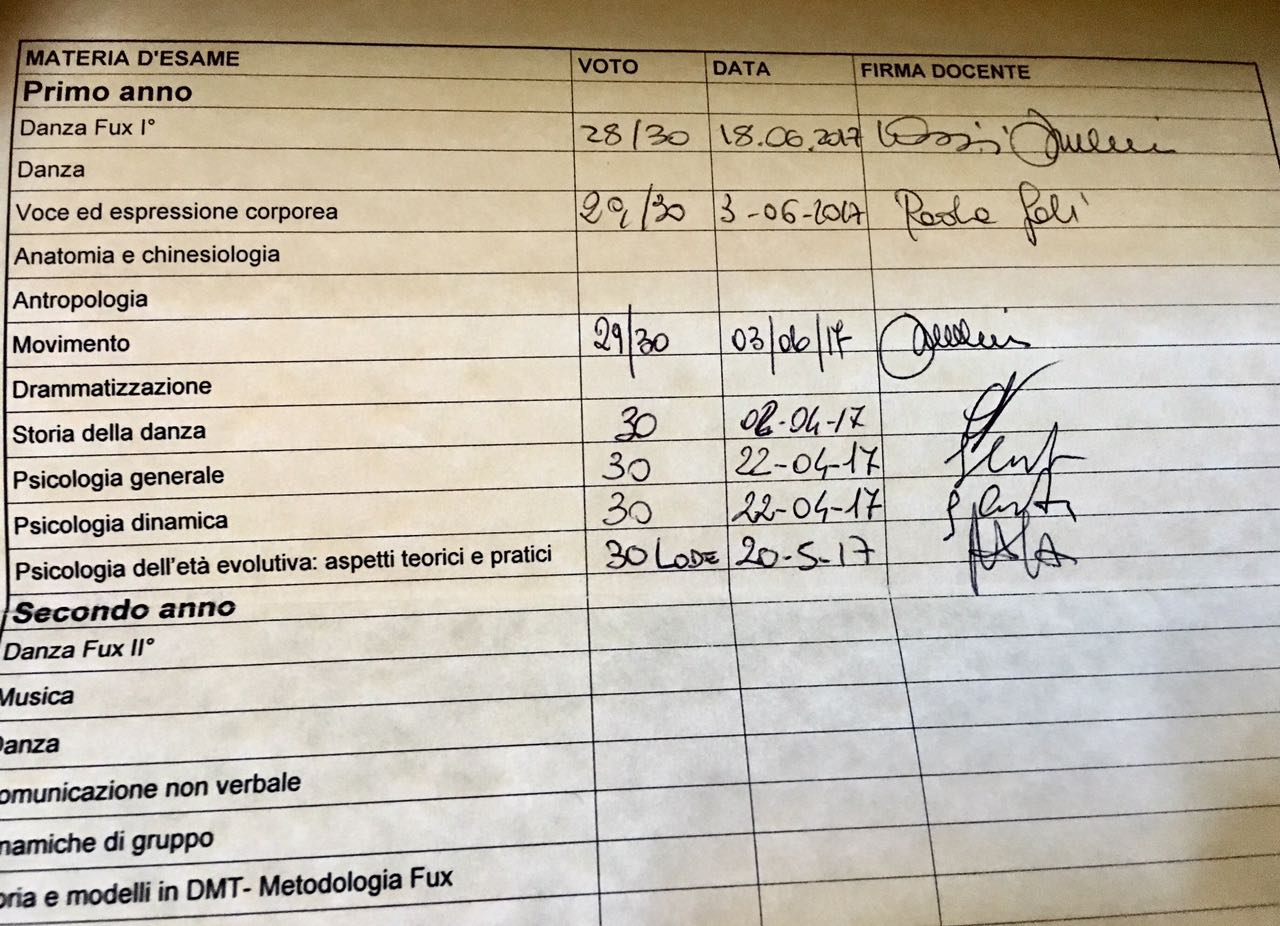 MATERIA D'ESAME VOTO DATA FIRMA DOCENTE
Primo anno
Danza Fux I° 28/30 18.06.2017
Danza
Voce ed espressione corporea 29/30 3-06-2017 Paola
Anatomia e chinesiologia
Antropologia
Movimento 29/30 03/06/17
Drammatizzazione
Storia della danza 30 02-04-17
Psicologia generale 30 22-04-17
Psicologia dinamica 30 22-04-17
Psicologia dell'età evolutiva: aspetti teorici e pratici 30 LODE 20-5-17
Secondo anno
Danza Fux II°
Musica
Danza
omunicazione non verbale
namiche di gruppo
oria e modelli in DMT- Metodologia Fux